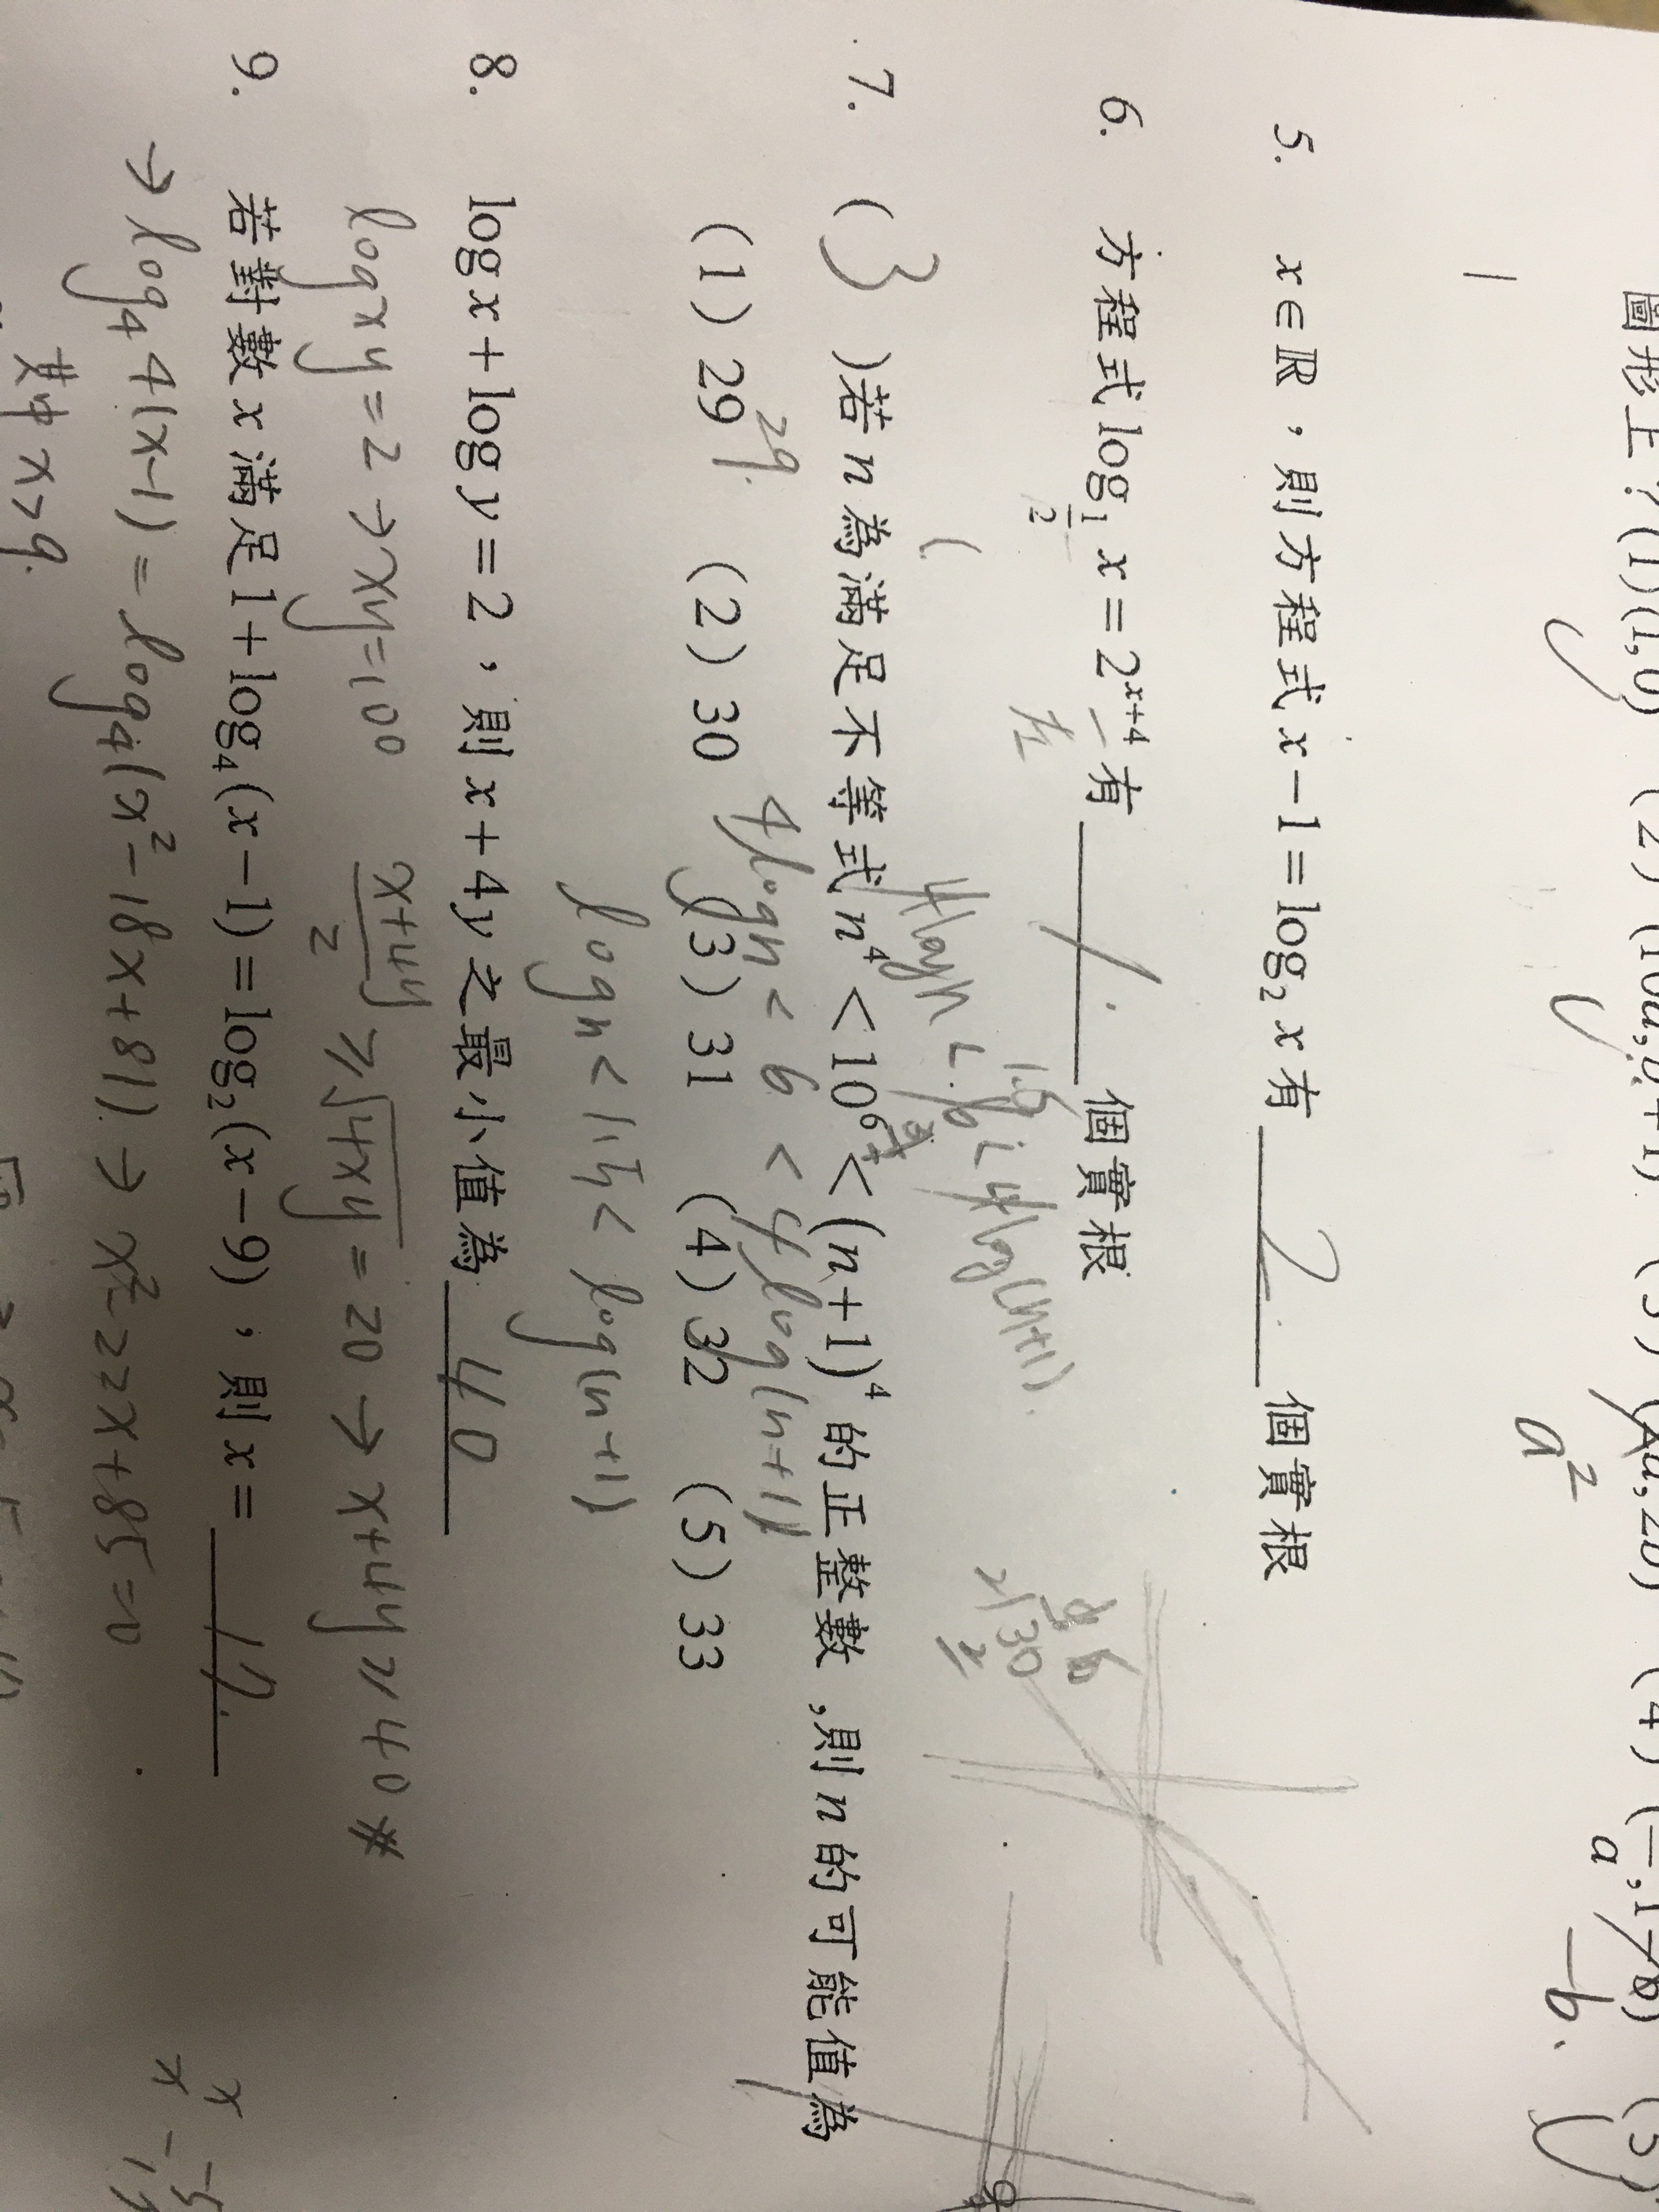 圖形上？(1)(1,0) (2)(10a,b+1) (3) (4) (5)
a²
a
-b
5. x∈ℝ，則方程式 x-1=log₂x 有 2 個實根
6. 方程式 log_{1/2} x = 2^{x+4} 有 1 個實根
4logn < 6 < 4log(n+1)
1.5
7. ( 3 )若 n 為滿足不等式 n⁴ < 10⁶ < (n+1)⁴ 的正整數,則 n 的可能值為
29
4logn < 6 < 4log(n+1)
(1) 29 (2) 30 (3) 31 (4) 32 (5) 33
logn < 1.5 < log(n+1)
8. log x + log y = 2，則 x + 4y 之最小值為 40
logxy = 2 → xy = 100 (x+4y)/2 ≥ √4xy = 20 → x+4y ≥ 40 #
9. 若對數 x 滿足 1 + log₄(x-1) = log₂(x-9)，則 x = 17.
→ log₄ 4(x-1) = log₄(x²-18x+81) → x²-22x+85=0
其中 x>9.